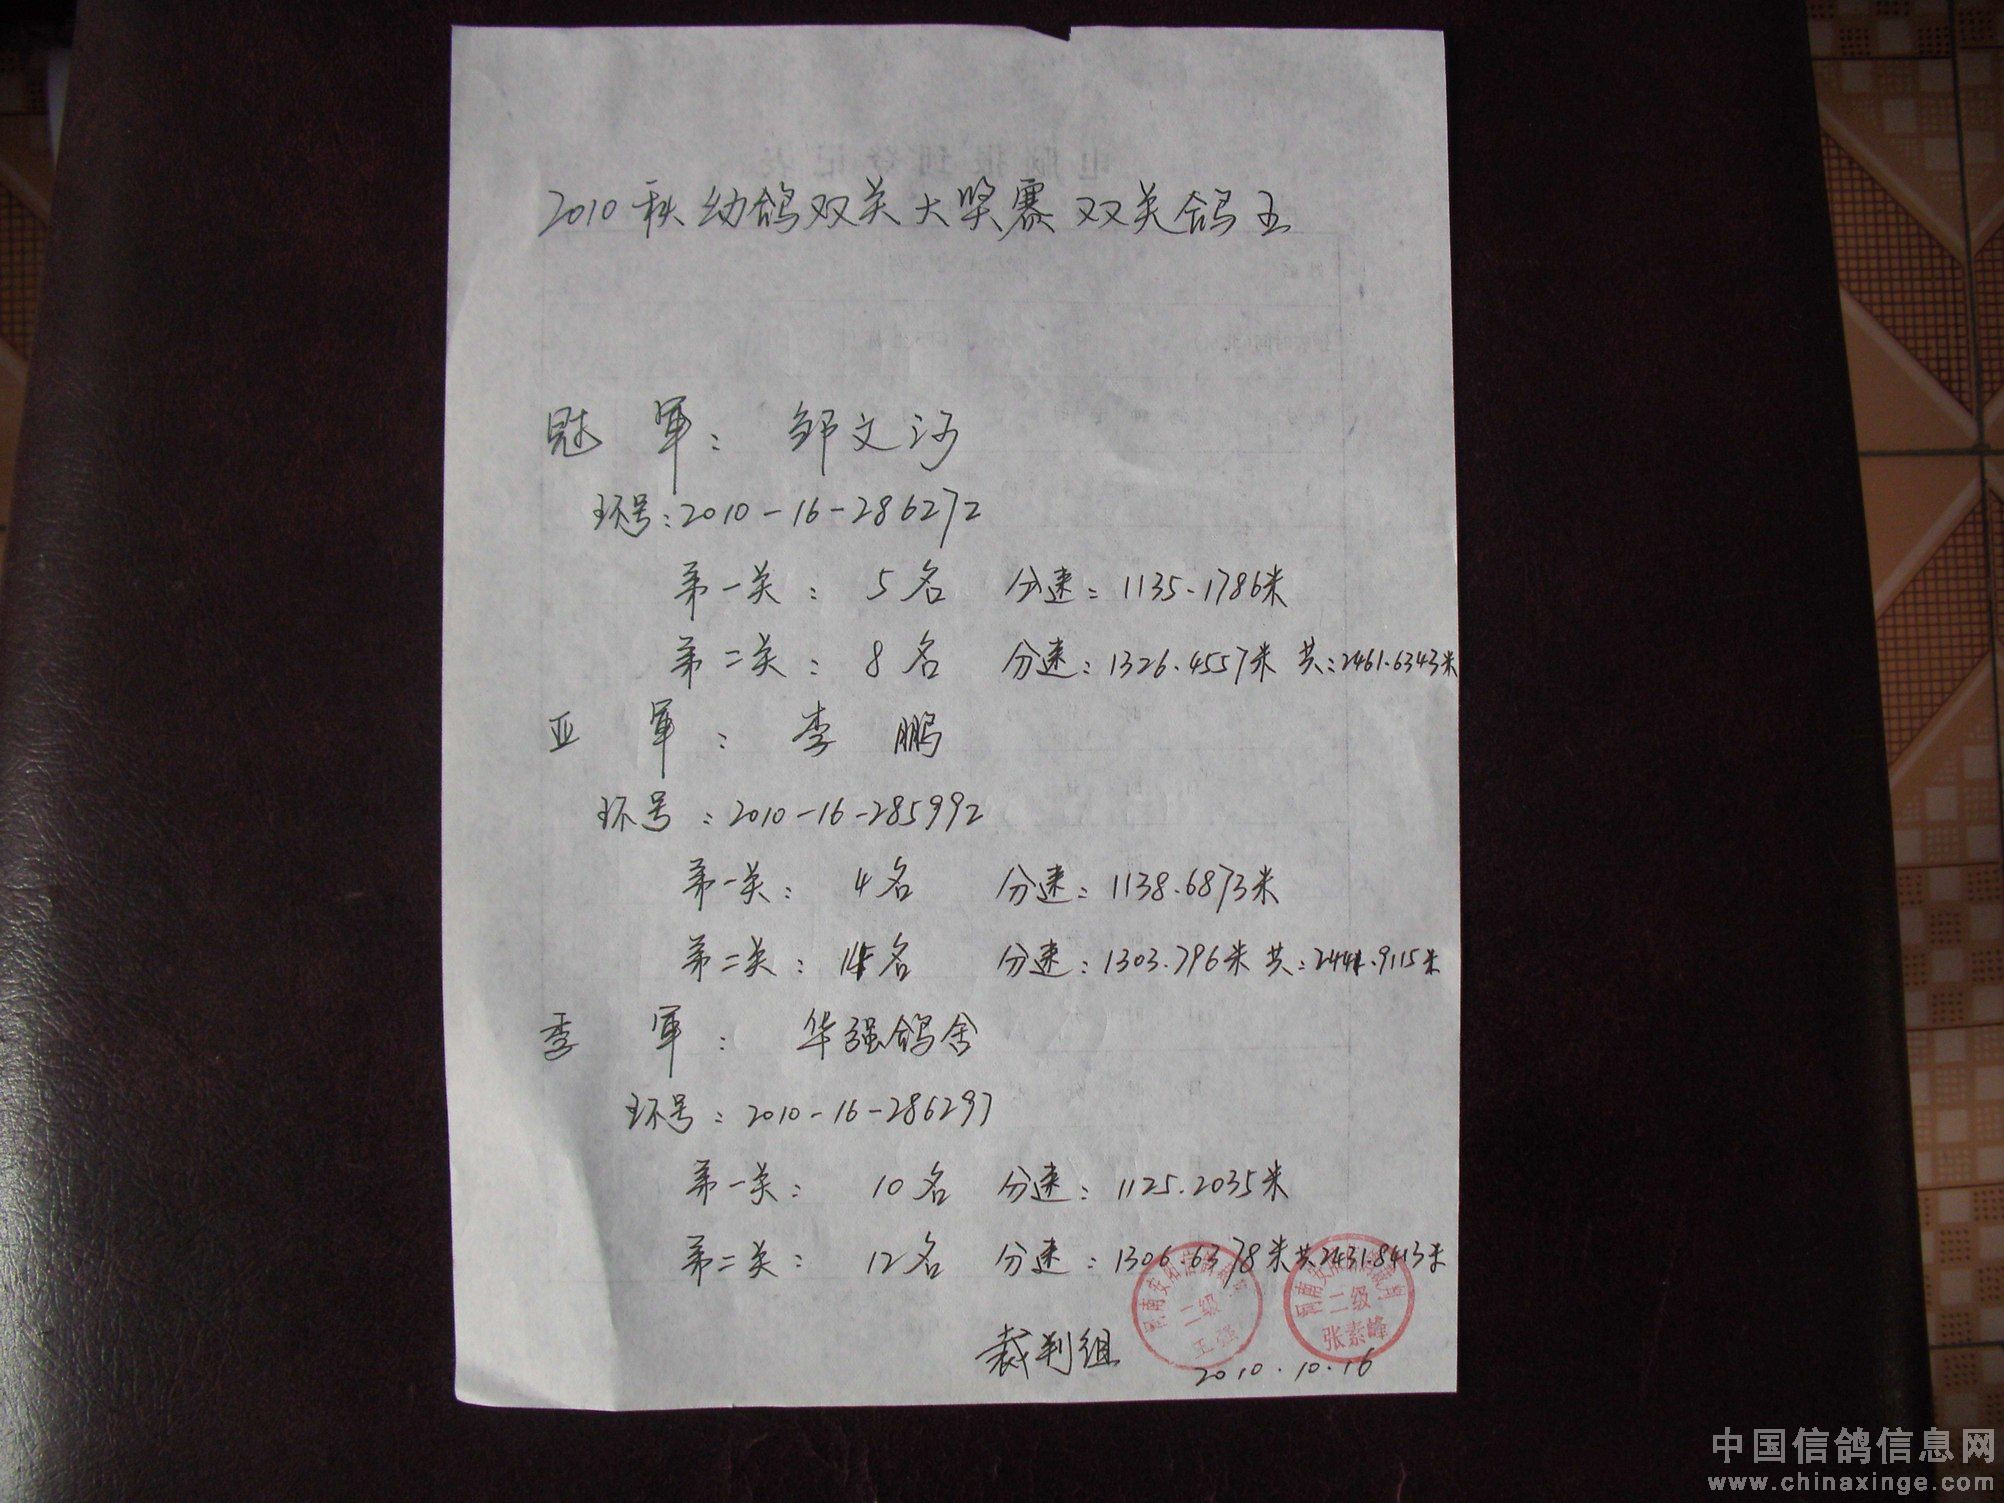 2010秋幼鸽双关大奖赛双关鸽王
冠 軍: 邹文河
环号:2010-16-286272
第一关: 5名 分速:1135.1786米
第二关: 8名 分速:1326.4557米 共:2461.6343米
亚 軍: 李 鹏
环号:2010-16-285992
第一关: 4名 分速:1138.6873米
第二关: 名 分速:1303.796米 共:
季 軍: 华强鸽舍
环号:2010-16-286297
第一关: 10名 分速:1125.2035米
第二关: 12名 分速:1306.6378米 共2431.8413米
二级
二级
张素峰
裁判组
2010.10.16
中国信鸽信息网
www.chinaxinge.com